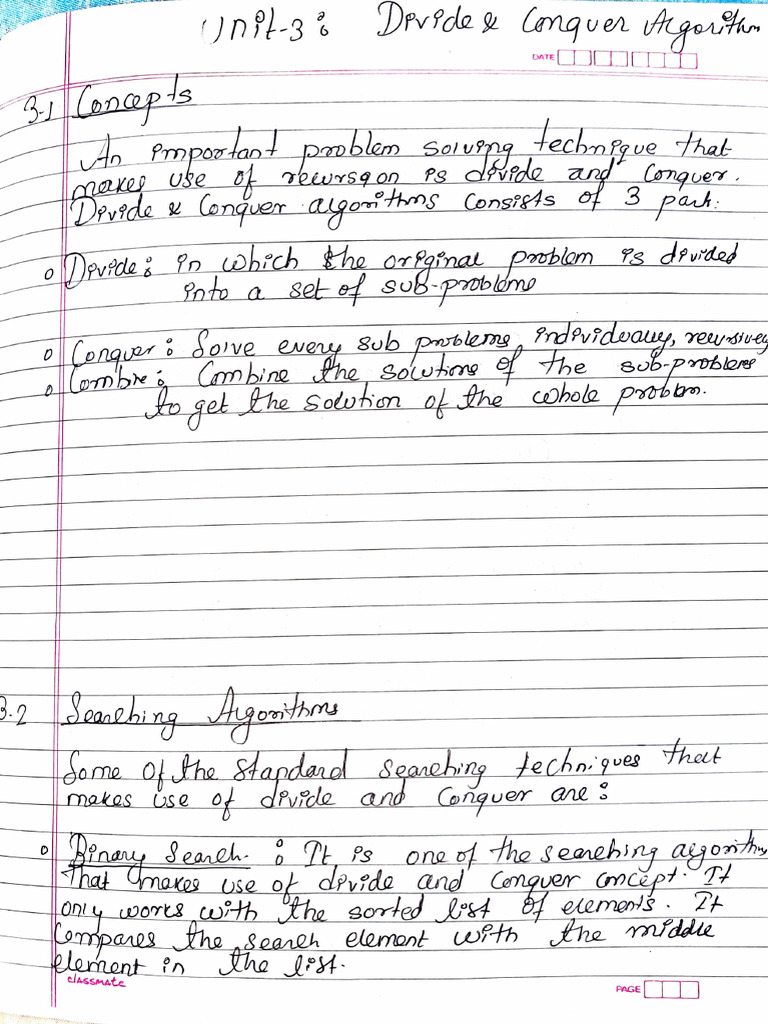 Unit-3: Divide & Conquer Algorithm
DATE
3.1 Concepts
An important problem solving technique that
makes use of recursqon is divide and conquer.
Divide & Conquer algorithms consists of 3 part:
o Divide: in which the original problem is divided
into a set of sub-problems
o Conquer: Solve every sub problems individually, recursively
o Combine: Combine the solutions of the sub-problems
to get the solution of the whole problem.
3.2 Searching Algorithms
Some of the standard searching techniques that
makes use of divide and conquer are:
o Binary Search: It is one of the searching algorithm
that makes use of divide and conquer concept. It
only works with the sorted list of elements. It
compares the search element with the middle
element in the list.
classmate
PAGE